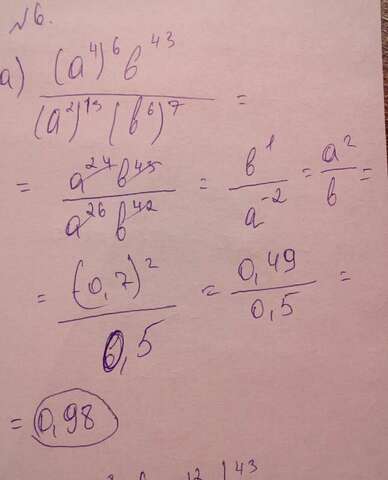 №6.
а) (a⁴)⁶ b⁴³ / (a²)¹³ (b⁶)⁷ =
= a²⁴ b⁴³ / a²⁶ b⁴² = b¹ / a⁻² = a² / b =
= (0,7)² / 0,5 = 0,49 / 0,5 =
= 0,98